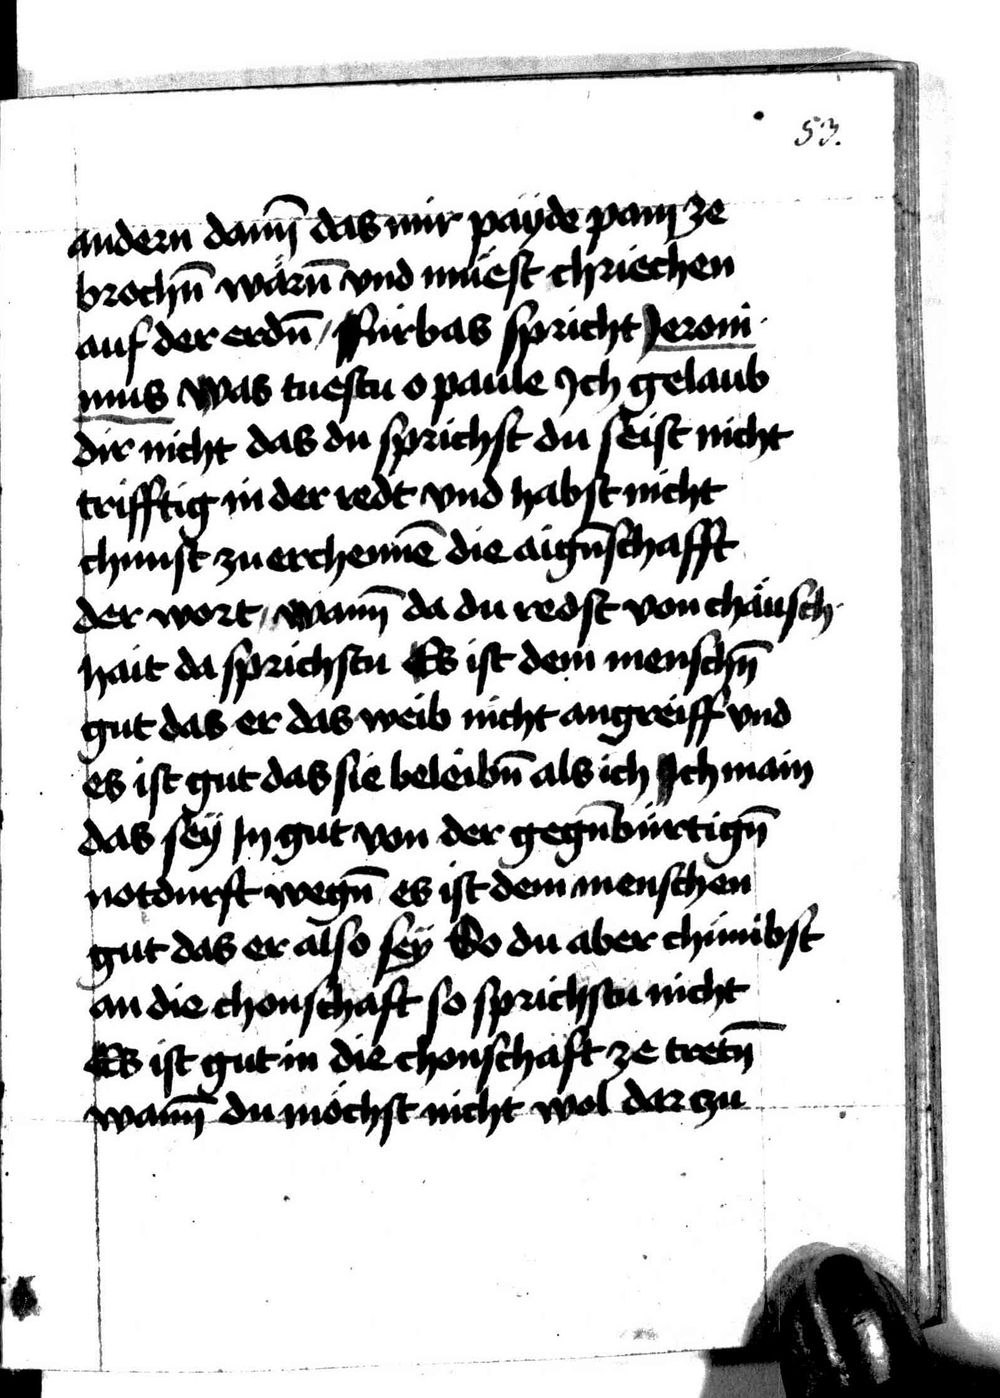 53.
andern dann̄ das mir paýde pain ze
brochn̄ wärn̄ vnd müest chriechen
auf der erdn̄ / Fürbas spricht Jeroni
mus Was tuestu o paule Ich gelaub
dir nicht das du sprichst du seist nicht
trifftig in der redt vnd habst nicht
chunst zu erchennē die aign̄schafft
der wort / wann̄ da du redst von chäusch
hait da sprichstu Es ist dem menschn̄
gut das er das weib nicht angreiff vnd
es ist gut das sie beleibn̄ als ich Ich main
das seÿ In gut von der gegn̄bürtign̄
notdurft wegn̄ es ist dem menschen
gut das er also seÿ So du aber chümbst
an die chonschaft so sprichstu nicht
Es ist gut in die chonschaft ze tretn̄
wann̄ du möchst nicht wol dar zu